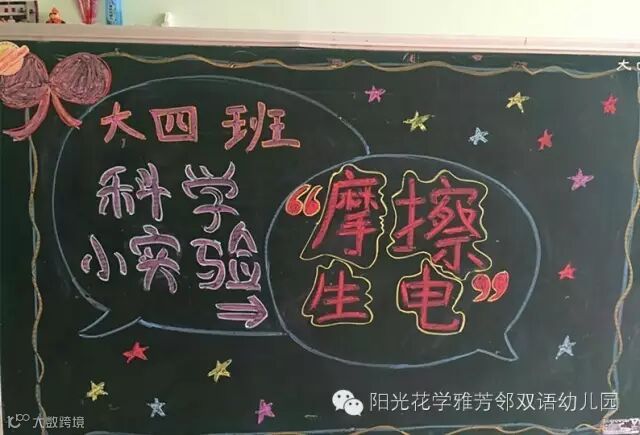 大四班
科学
小实验
“摩擦
生电”
阳光花学雅芳邻双语幼儿园
大数跨境